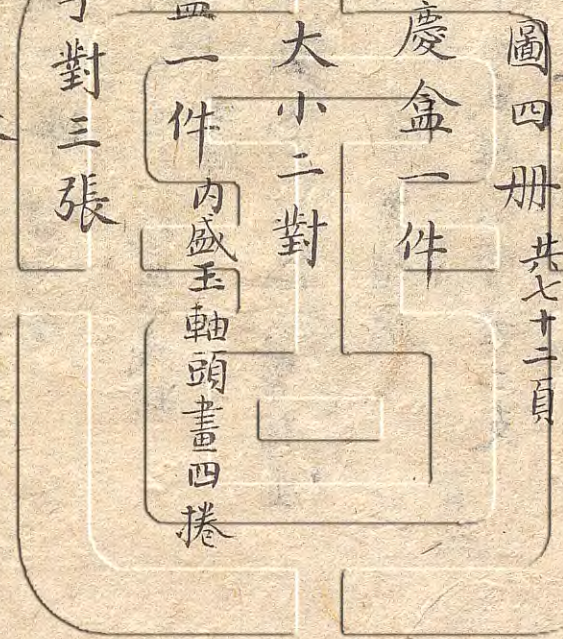 圖四册共七十二頁
慶盒一件
大小二對
盒一件内盛玉軸頭畫四捲
對三張